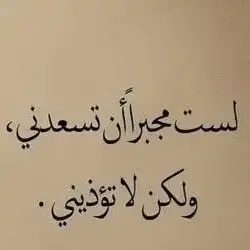 لست مجبراً أن تسعدني،
ولكن لا تؤذيني.